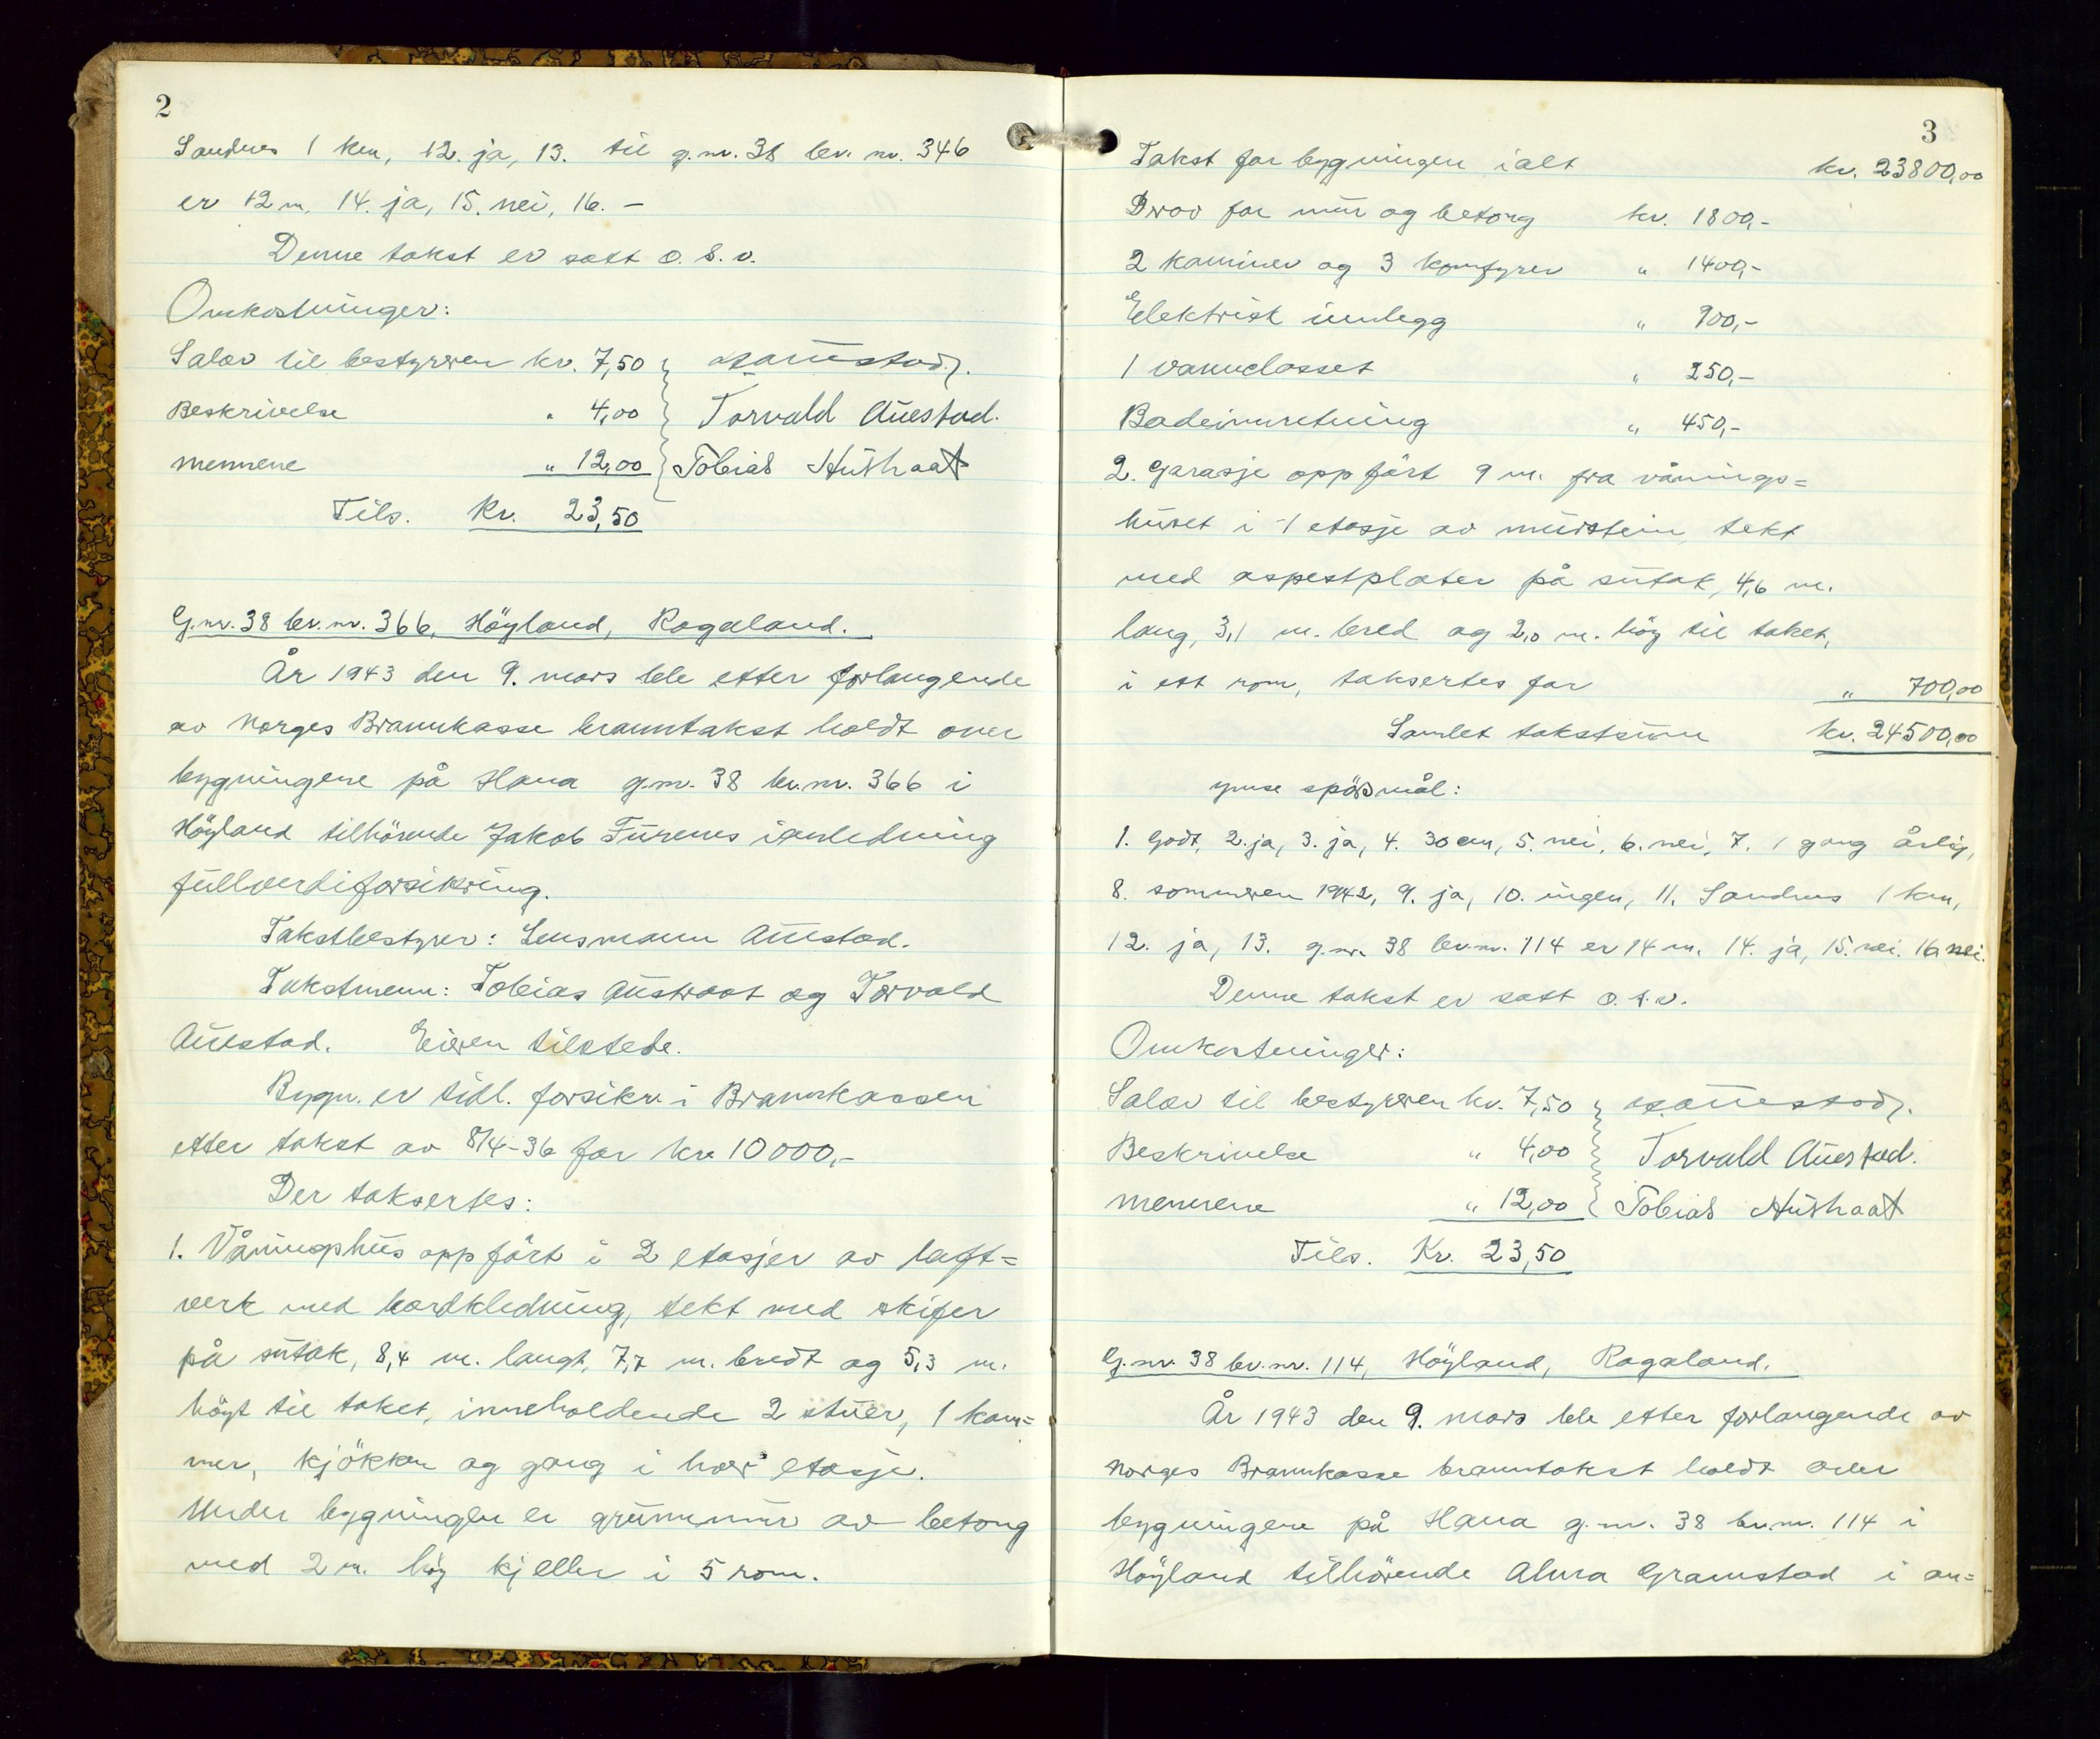 2
Sandnes 1 km, 12. ja, 13. til g.nr. 38 br. nr. 346
er 12 m, 14. ja, 15. nei, 16. –
Denne takst er satt o. s. v.
Omkostninger:
Salær til bestyreren kr. 7,50 Auestad.
Beskrivelse " 4,00 Torvald Auestad.
mennene " 12,00 Tobias Austraat
Tils. Kr. 23,50
G.nr. 38 br.nr. 366, Höyland, Rogaland.
År 1943 den 9. mars ble etter forlangende
av Norges Brannkasse branntakst holdt over
bygningene på Hana g.nr. 38 br.nr. 366 i
Höyland tilhörende Jakob Furenes i anledning
fullverdiforsikring.
Takstbestyrer: Lensmann Auestad.
Takstmenn: Tobias Austraat og Torvald
Auestad. Eieren tilstede.
Bygn. er tidl. forsikr. i Brannkassen
etter takst av 8/4-36 for kr. 10000,-
Der taksertes:
1. Våningshus oppfört i 2 etasjer av laft=
verk med bordkledning, tekt med skifer
på sutak, 8,4 m. langt, 7,7 m. bredt og 5,3 m.
höyt til taket, inneholdende 2 stuer, 1 kam=
mer, kjökken og gang i hver etasje.
Under bygningen er grunnmur av betong
med 2 m. höy kjeller i 5 rom.
3
Takst for bygningen ialt kr. 23800,00
Derav for mur og betong kr. 1800,-
2 kaminer og 3 komfyrer " 1400,-
Elektrisk innlegg " 900,-
1 vannclosset " 250,-
Badeinnretning " 450,-
2. Garasje oppfört 9 m. fra vånings=
huset i 1 etasje av murstein, tekt
med aspestplater på sutak, 4,6 m.
lang, 3,1 m. bred og 2,0 m. höy til taket,
i ett rom, taksertes for " 700,00
Samlet takstsum kr. 24500,00
ymse spörsmål:
1. Godt, 2. ja, 3. ja, 4. 30 cm, 5. nei, 6. nei, 7. 1 gang årlig,
8. sommeren 1942, 9. ja, 10. ingen, 11. Sandnes 1 km,
12. ja, 13. g.nr. 38 br.nr. 114 er 14 m. 14. ja, 15. nei. 16 nei.
Denne takst er satt o. s. v.
Omkostninger:
Salær til bestyreren kr. 7,50 Auestad.
Beskrivelse " 4,00 Torvald Auestad.
mennene " 12,00 Tobias Austraat
Tils. Kr. 23,50
G.nr. 38 br.nr. 114, Höyland, Rogaland.
År 1943 den 9. mars ble etter forlangende av
Norges Brannkasse branntakst holdt over
bygningene på Hana g.nr. 38 br.nr. 114 i
Höyland tilhörende Alma Gramstad i an=